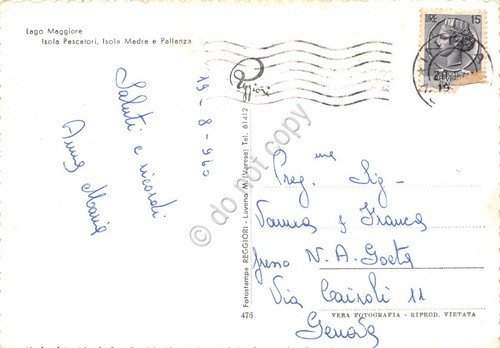 Lago Maggiore
Isola Pescatori, Isola Madre e Pallanza
Saluti e ricordi
Anna Maria
19-8-960
Reggiori
Fotostampa REGGIORI - Laveno M. (Varese) Tel. 61412
do not copy
LIRE 15
Preg.me Sig.
Vanna e Franca
presso N. A. Goeta
Via Cairoli 11
Genova
476
VERA FOTOGRAFIA - RIPROD. VIETATA